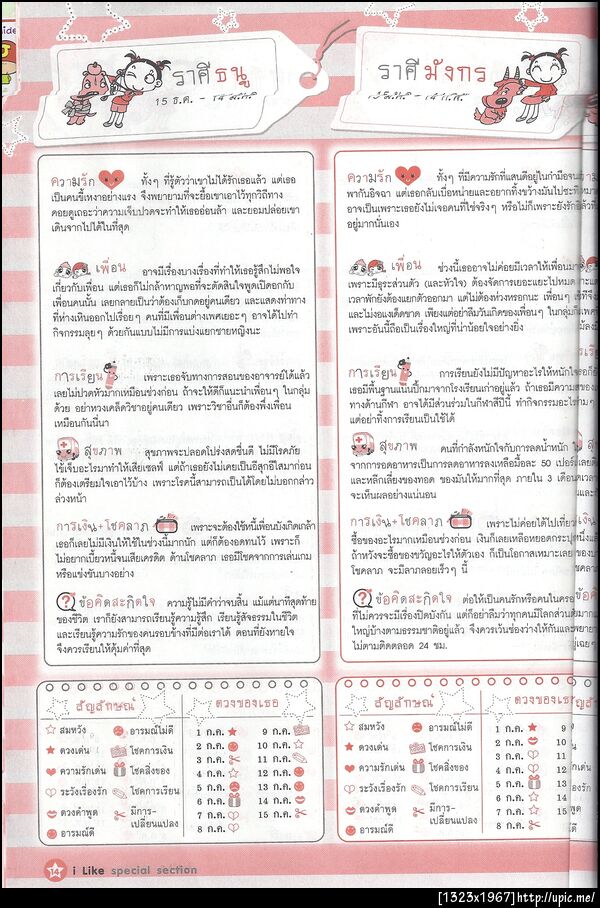 ราศีธนู
15 ธ.ค. - 14 ม.ค.
ความรัก ทั้งๆ ที่รู้ตัวว่าเขาไม่ได้รักเธอแล้ว แต่เธอ
เป็นคนขี้เหงาอย่างแรง จึงพยายามที่จะยื้อเขาเอาไว้ทุกวิถีทาง
คอยดูเถอะว่าความเจ็บปวดจะทำให้เธออ่อนล้า และยอมปล่อยเขา
เดินจากไปได้ในที่สุด
เพื่อน อาจมีเรื่องบางเรื่องที่ทำให้เธอรู้สึกไม่พอใจ
เกี่ยวกับเพื่อน แต่เธอก็ไม่กล้าหาญพอที่จะตัดสินใจพูดเปิดอกกับ
เพื่อนคนนั้น เลยกลายเป็นว่าต้องเก็บกดอยู่คนเดียว และแสดงท่าทาง
ที่ห่างเหินออกไปเรื่อยๆ คนที่มีเพื่อนต่างเพศเยอะๆ อาจได้ไปทำ
กิจกรรมลุยๆ ด้วยกันแบบไม่มีการแบ่งแยกชายหญิงนะ
การเรียน เพราะเธอจับทางการสอนของอาจารย์ได้แล้ว
เลยไม่ปวดหัวมากเหมือนช่วงก่อน ถ้าจะให้ดีก็แนะนำเพื่อนๆ ในกลุ่ม
ด้วย อย่าหวงเคล็ดวิชาอยู่คนเดียว เพราะวิชาอื่นก็ต้องพึ่งเพื่อน
เหมือนกันนี่นา
สุขภาพ สุขภาพจะปลอดโปร่งสดชื่นดี ไม่มีโรคภัย
ไข้เจ็บอะไรมาทำให้เสียเซลฟ์ แต่ถ้าเธอยังไม่เคยเป็นอีสุกอีใสมาก่อน
ก็ต้องเตรียมใจเอาไว้บ้าง เพราะโรคนี้สามารถเป็นได้โดยไม่บอกกล่าว
ล่วงหน้า
การเงิน+โชคลาภ เพราะจะต้องใช้หนี้เพื่อนบังเกิดเกล้า
เธอก็เลยไม่มีเงินให้ใช้ในช่วงนี้มากนัก แต่ก็ต้องอดทนไว้ เพราะก็
ไม่อยากเบี้ยวหนี้จนเสียเครดิต ด้านโชคลาภ เธอมีโชคจากการเล่นเกม
หรือแข่งขันบางอย่าง
ข้อคิดสะกิดใจ ความรู้ไม่มีคำว่าจบสิ้น แม้แต่นาทีสุดท้าย
ของชีวิต เราก็ยังสามารถเรียนรู้ความรู้สึก เรียนรู้สัจธรรมในชีวิต
และเรียนรู้ความรักของคนรอบข้างที่มีต่อเราได้ ตอนที่ยังหายใจ
จึงควรเรียนให้คุ้มค่าที่สุด
สัญลักษณ์
สมหวัง
ดวงเด่น
ความรักเด่น
ระวังเรื่องรัก
ดวงคำพูด
อารมณ์ดี
อารมณ์ไม่ดี
โชคการเงิน
โชคสิ่งของ
โชคการเรียน
มีการ-
เปลี่ยนแปลง
ดวงของเธอ
1 ก.ค. 9 ก.ค.
2 ก.ค. 10 ก.ค.
3 ก.ค. 11 ก.ค.
4 ก.ค. 12 ก.ค.
5 ก.ค. 13 ก.ค.
6 ก.ค. 14 ก.ค.
7 ก.ค. 15 ก.ค.
8 ก.ค.
ราศีมังกร
ความรัก ทั้งๆ ที่มีความรักที่แสนดีอยู่ในกำมือจน
พากันอิจฉา แต่เธอกลับเบื่อหน่ายและอยากทิ้งขว้างมันไป
อาจเป็นเพราะเธอยังไม่เจอคนที่ใช่จริงๆ หรือไม่ก็เพราะยังรัก
อยู่มากนั่นเอง
เพื่อน ช่วงนี้เธออาจไม่ค่อยมีเวลาให้เพื่อน
เพราะมีธุระส่วนตัว (และหัวใจ) ต้องจัดการเยอะแยะไปหมด
เวลาพักยังต้องแยกตัวออกมา แต่ไม่ต้องห่วงหรอกนะ เพื่อนๆ
และไม่งอแงเด็ดขาด เพียงแต่อย่าลืมวันเกิดของเพื่อนๆ ในกลุ่ม
เพราะอันนี้ถือเป็นเรื่องใหญ่ที่น่าน้อยใจอย่างยิ่ง
การเรียน การเรียนยังไม่มีปัญหาอะไรให้หนักใจ
เธอมีพื้นฐานแน่นปึ้กมาจากโรงเรียนเก่าอยู่แล้ว ถ้าเธอมีความ
ทางด้านกีฬา อาจได้มีส่วนร่วมในกีฬาสีปีนี้ ทำกิจกรรมอะไร
แต่อย่าทิ้งการเรียนเป็นใช้ได้
สุขภาพ คนที่กำลังหนักใจกับการลดน้ำหนัก
จากการอดอาหารเป็นการลดอาหารลงเหลือมื้อละ 50 เปอร์
และหลีกเลี่ยงของทอด ของมันให้มากที่สุด ภายใน 3 เดือน
จะเห็นผลอย่างแน่นอน
การเงิน+โชคลาภ เพราะไม่ค่อยได้ไปเที่ยว
ซื้อของอะไรมากเหมือนช่วงก่อน เงินก็เลยเหลือหยอดกระปุก
ถ้าหวังจะซื้อของขวัญอะไรให้ตัวเอง ก็เป็นโอกาสเหมาะเลย
โชคลาภ จะมีลาภลอยเร็วๆ นี้
ข้อคิดสะกิดใจ ต่อให้เป็นคนรักหรือคนในครอบ
ที่ไม่ควรจะมีเรื่องปิดบังกัน แต่ก็อย่าลืมว่าทุกคนมีโลกส่วน
ใหญ่บ้างตามธรรมชาติอยู่แล้ว จึงควรเว้นช่องว่างให้กัน
ไม่ตามติดตลอด 24 ชม.
สัญลักษณ์
สมหวัง
ดวงเด่น
ความรักเด่น
ระวังเรื่องรัก
ดวงคำพูด
อารมณ์ดี
อารมณ์ไม่ดี
โชคการเงิน
โชคสิ่งของ
โชคการเรียน
มีการ-
เปลี่ยนแปลง
ดวงของเธอ
1 ก.ค. 9
2 ก.ค. 10
3 ก.ค. 11
4 ก.ค. 12
5 ก.ค. 13
6 ก.ค. 14
7 ก.ค. 15
8 ก.ค.
14 i Like special section
[1323x1967]http://upic.me/